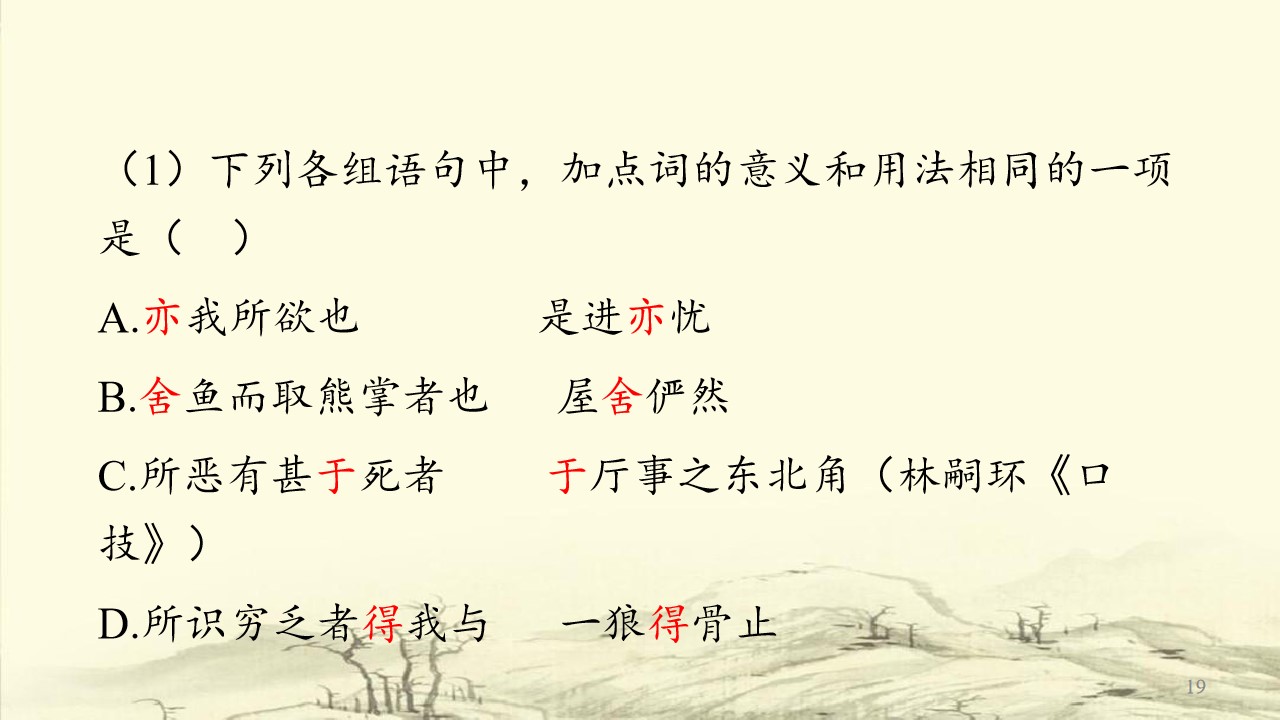 （1）下列各组语句中，加点词的意义和用法相同的一项
是（　）
A.亦我所欲也 是进亦忧
B.舍鱼而取熊掌者也 屋舍俨然
C.所恶有甚于死者 于厅事之东北角（林嗣环《口
技》）
D.所识穷乏者得我与 一狼得骨止
19